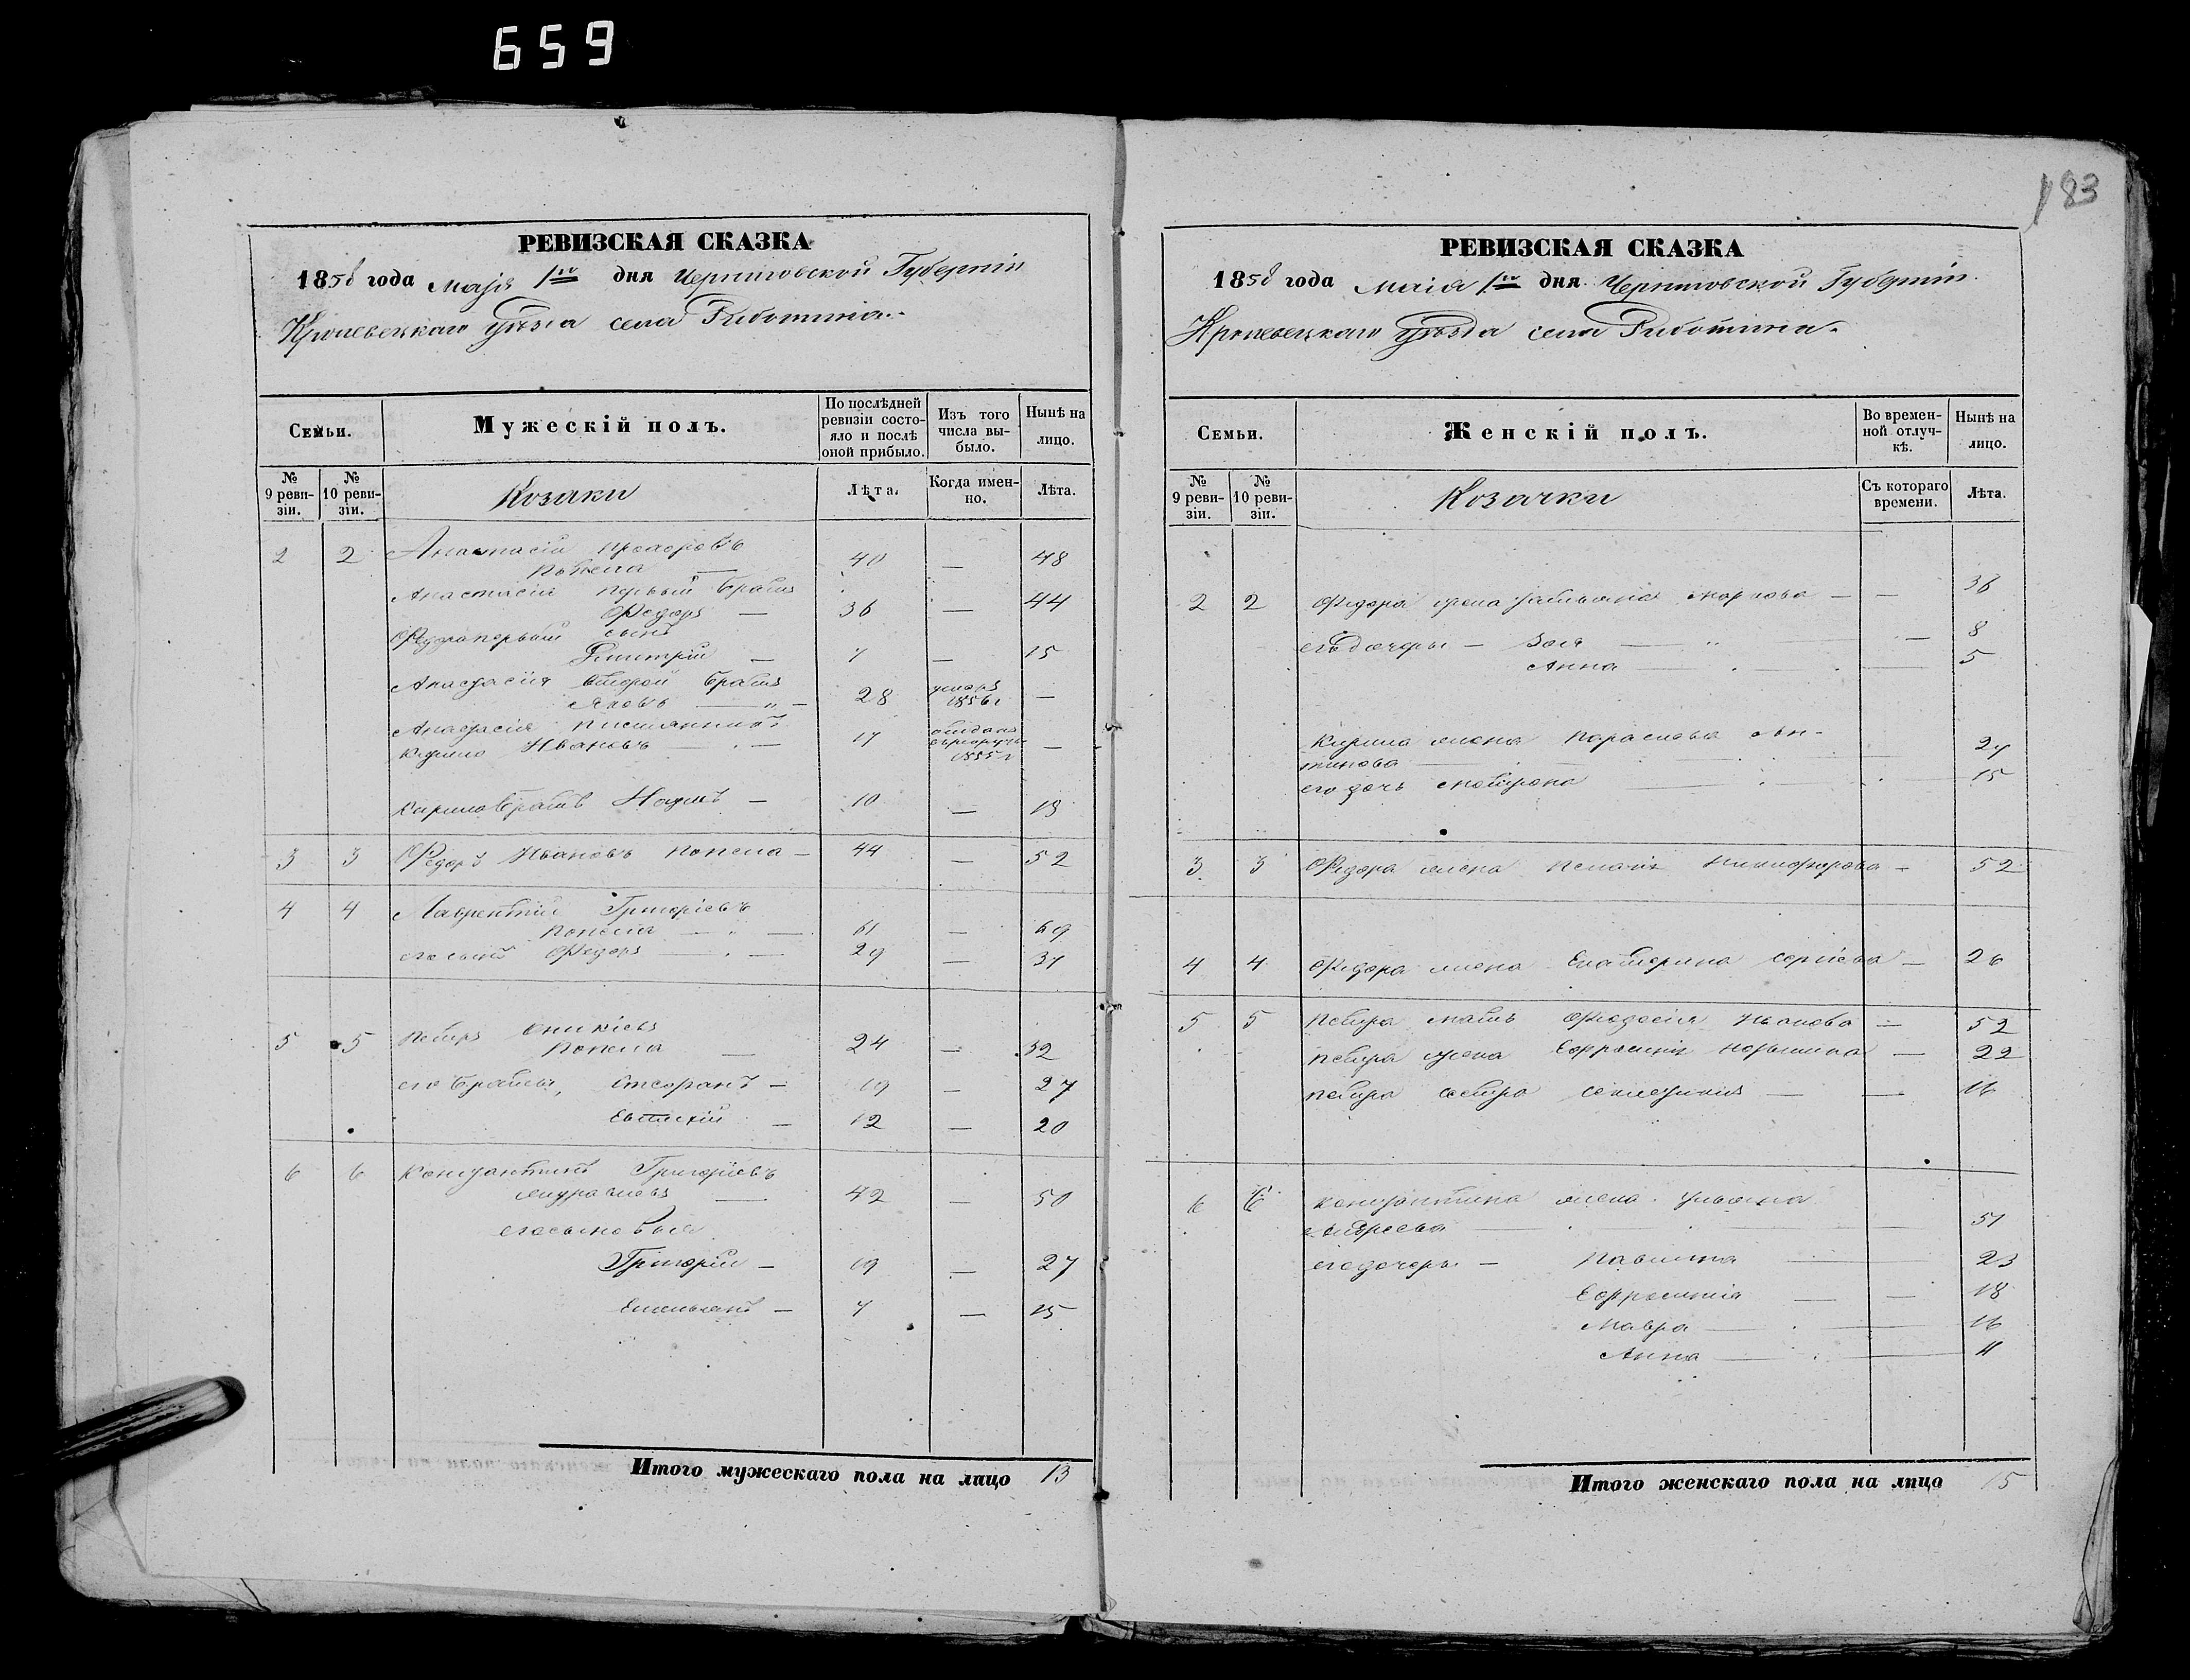 659
183
РЕВИЗСКАЯ СКАЗКА
1858 года Маія 1го дня Черниговской Губерніи
Кролевецкаго уѣзда села Риботина.
Семьи.
Мужескій полъ.
По послѣдней ревизіи состояло и послѣ оной прибыло.
Изъ того числа выбыло.
Нынѣ на лицо.
№ 9 ревизіи.
№ 10 ревизіи.
Козаки
Лѣта.
Когда именно.
Лѣта.
2 2 Анастасій Прохоровъ
40 — 48
Анастасія первый братъ
Федоръ — 36 — 44
Федора первый сынъ
Дмитрій — 7 — 15
Анастасія второй братъ
Яковъ — 28 умеръ 1856 г —
Анастасія племянникъ
Кирило Ивановъ — 17 отданъ въ рекруты 1855 г —
Кирила братъ Наумъ — 10 — 18
3 3 Федоръ Ивановъ Попела — 44 — 52
4 4 Лаврентій Григоріевъ
Попела — 61 — 69
его сынъ Федоръ — 29 — 37
5 5 Петръ Оникіевъ
Попела — 24 — 32
его братья, Стефанъ — 19 — 27
Евтихій — 12 — 20
6 6 Константинъ Григоріевъ
42 — 50
его сыновья
Григорій — 19 — 27
Емельянъ — 7 — 15
Итого мужескаго пола на лицо 13
РЕВИЗСКАЯ СКАЗКА
1858 года Маія 1го дня Черниговской Губерніи
Кролевецкаго уѣзда села Риботина.
Семьи.
Женскій полъ.
Во временной отлучкѣ.
Нынѣ на лицо.
№ 9 ревизіи.
№ 10 ревизіи.
Козачки
Съ котораго времени.
Лѣта.
2 2 Федора жена Татьяна Маркова — — 36
его дочери — Зоя — 8
Анна — 5
Кирила жена Параскева
27
его дочь Матрона 15
3 3 Федора жена Пелагія Никифорова — 52
4 4 Федора жена Екатерина Сергіева — 26
5 5 Петра мать Феодосія Иванова — 52
Петра жена Ефросинія — 22
Петра сестра — — 16
6 6 Константина жена Ульяна
Андреева — 51
его дочери — Павлина — 23
Ефросинія — — 18
Мавра — 16
Анна — 11
Итого женскаго пола на лицо 15